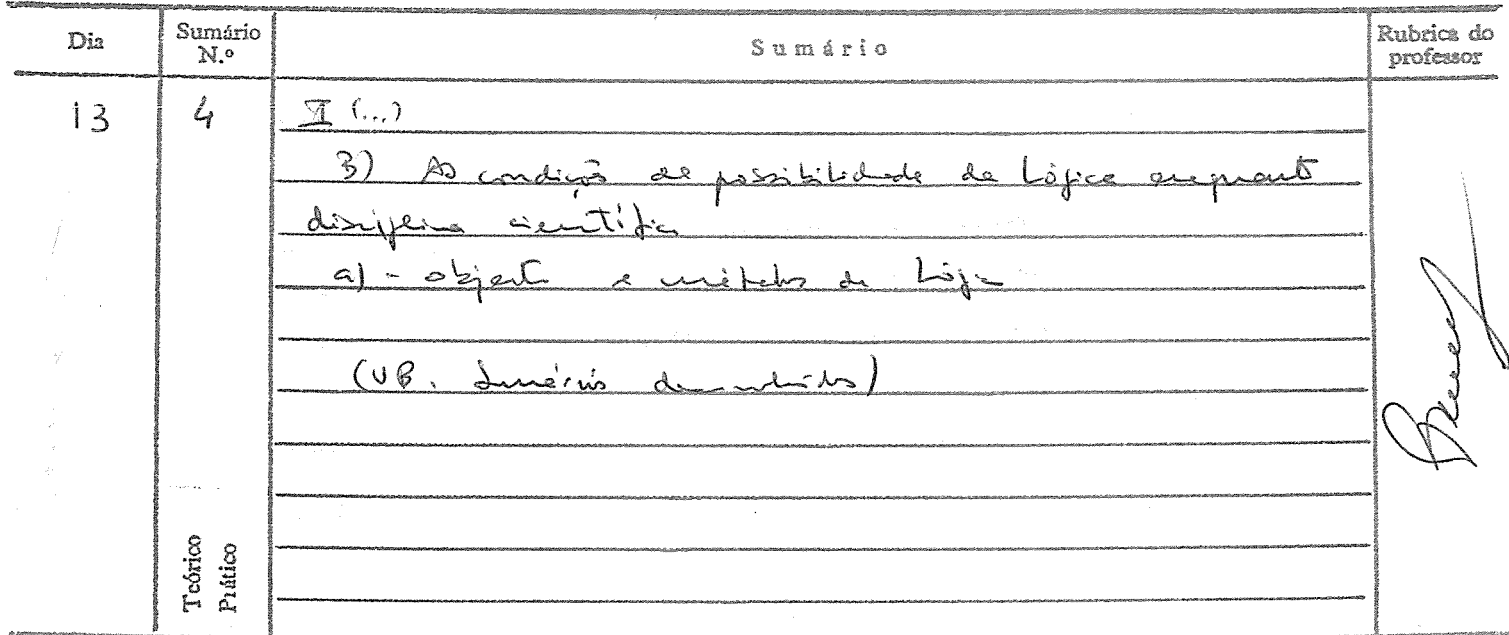 Dia
Sumário N.º
Sumário
Rubrica do professor
13
4
VI (...)
3) As condições de possibilidade da Lógica enquanto
disciplina científica
a) - objecto e métodos da Lógica
(VB. Sumários desenvolvidos)
Teórico
Prático